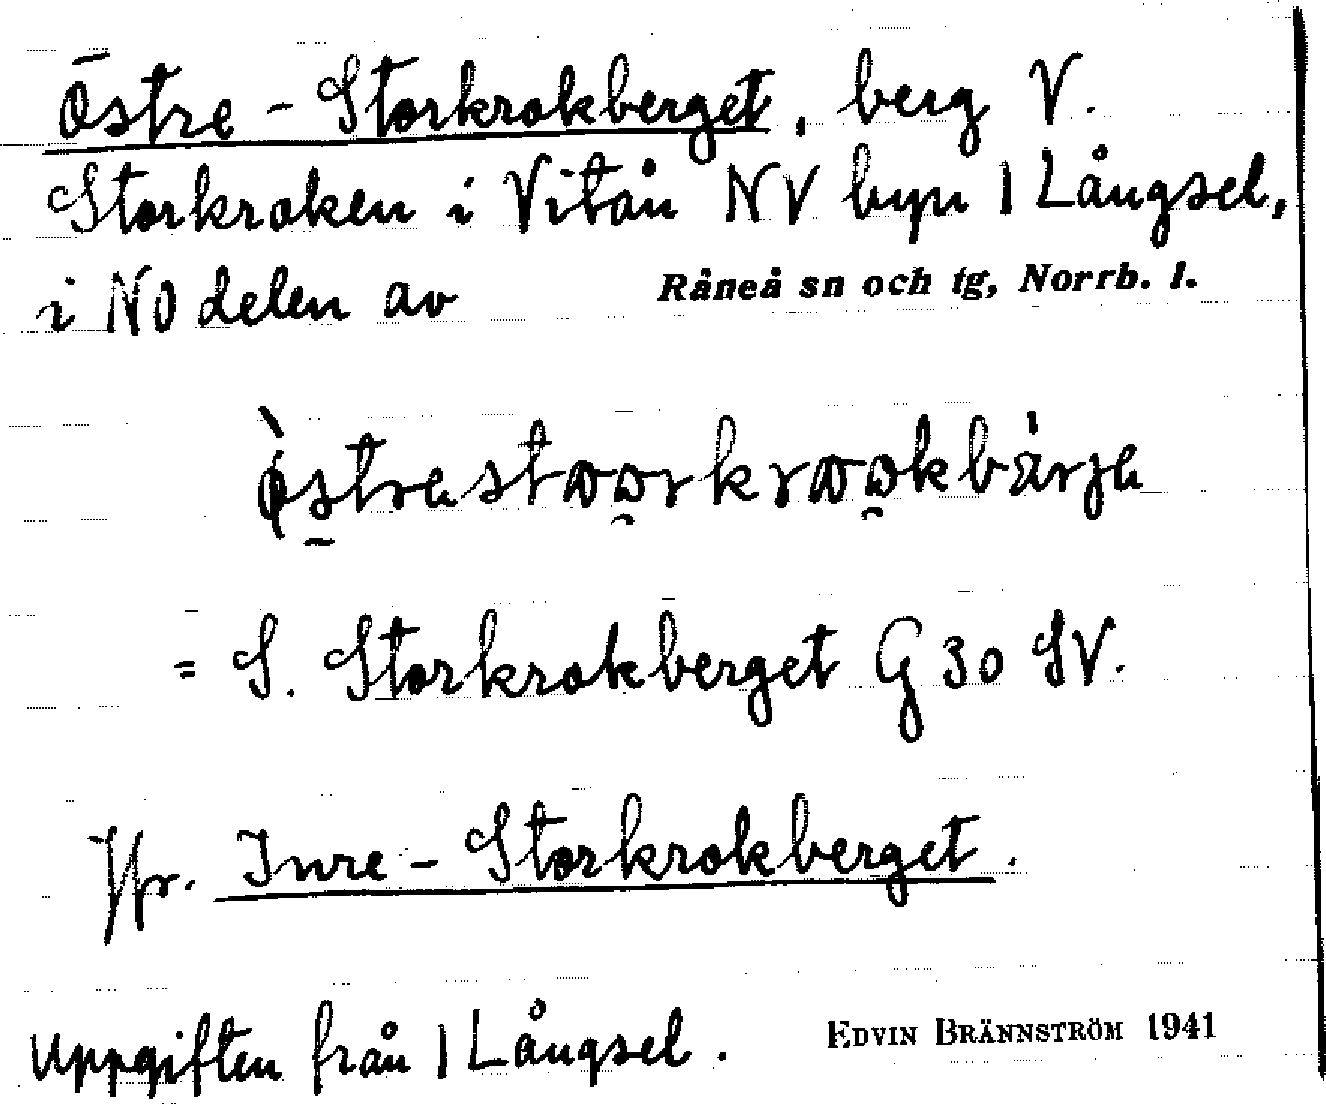 Östre-Storkrokberget, berg V.
Storkroken i Vitån NV byn 1 Långsel,
i NO delen av Råneå sn och tg, Norrb. l.
= S. Storkrokberget G 30 SV.
Jfr. Inre-Storkrokberget.
Uppgiften från 1 Långsel. EDVIN BRÄNNSTRÖM 1941